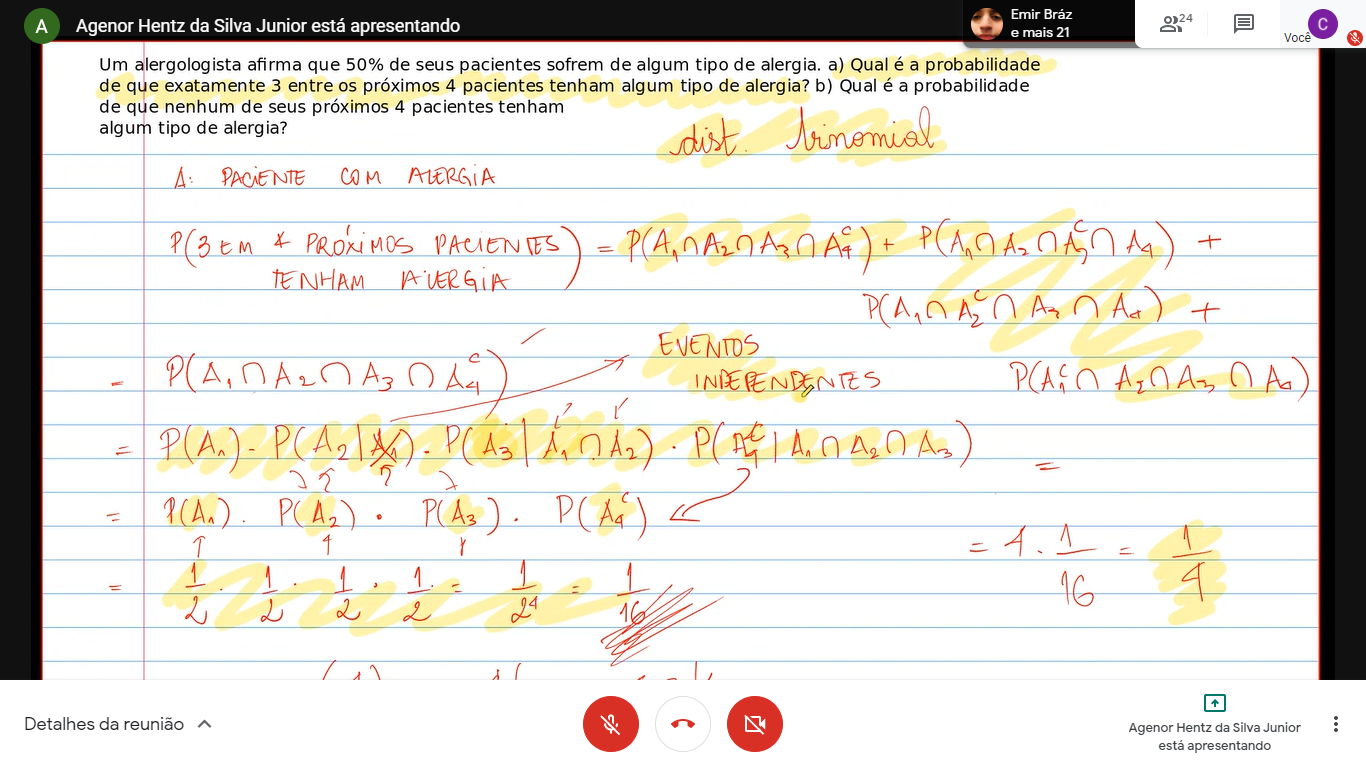 A Agenor Hentz da Silva Junior está apresentando
Emir Bráz
e mais 21
24
Você
C
Um alergologista afirma que 50% de seus pacientes sofrem de algum tipo de alergia. a) Qual é a probabilidade
de que exatamente 3 entre os próximos 4 pacientes tenham algum tipo de alergia? b) Qual é a probabilidade
de que nenhum de seus próximos 4 pacientes tenham
algum tipo de alergia?
dist. binomial
A: PACIENTE COM ALERGIA
P(3 EM 4 PRÓXIMOS PACIENTES TENHAM ALERGIA) = P(A₁∩A₂∩A₃∩A₄ᶜ) + P(A₁∩A₂∩A₃ᶜ∩A₄) +
P(A₁∩A₂ᶜ∩A₃∩A₄) +
P(A₁ᶜ∩A₂∩A₃∩A₄)
EVENTOS
INDEPENDENTES
= P(A₁∩A₂∩A₃∩A₄ᶜ)
= P(A₁) · P(A₂|A₁) · P(A₃|A₁∩A₂) · P(A₄ᶜ|A₁∩A₂∩A₃) =
= P(A₁) · P(A₂) · P(A₃) · P(A₄ᶜ)
= 4 · 1/16 = 1/4
= 1/2 · 1/2 · 1/2 · 1/2 = 1/2⁴ = 1/16
Detalhes da reunião
Agenor Hentz da Silva Junior
está apresentando